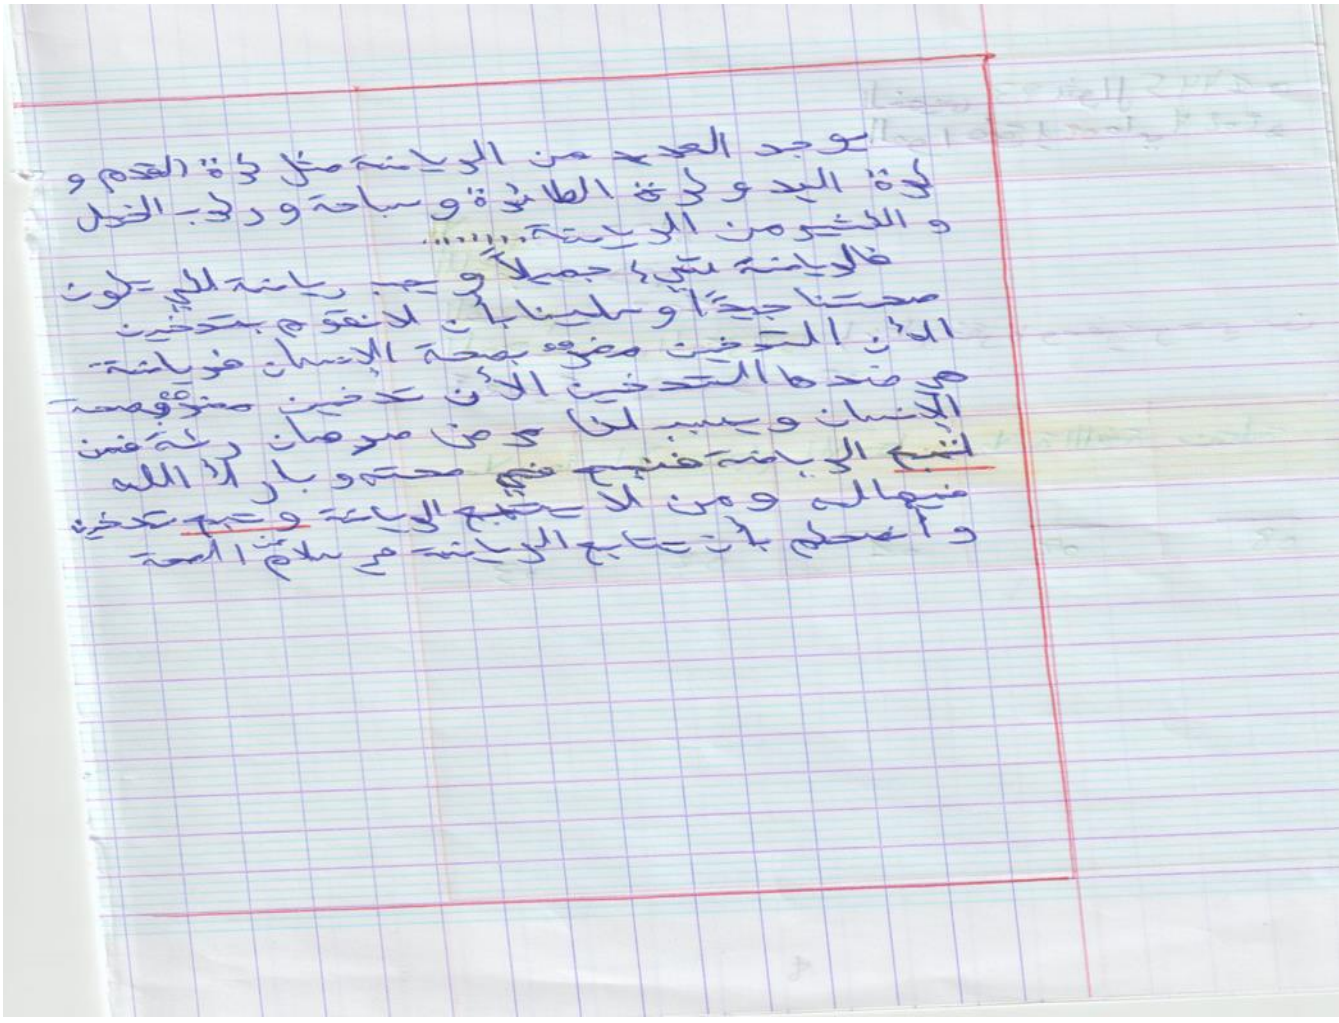 يوجد العديد من الرياضة مثل كرة القدم و
كرة اليد و كرة الطائرة و سباحة و ركب الخيل
و الكثير من الرياضة........
فالرياضة شيء جميلاً و يجب رياضة لكي تكون
صحتنا جيدًا و علينا بأن لا نقوم بتدخين
الأن التدخين مضرة بصحة الإنسان فرياضة
هي ضدها التدخين الأن تدخين مضرة بصحة
الإنسان و يسبب لنا مرض سرطان رئة فمن
لتبع الرياضة فنيح في صحته و بارك الله
فيها له و من لا يتبع الرياضة و تتبع تدخين
و أنصحكم بأن يتابع الرياضة هي سلامة الصحة